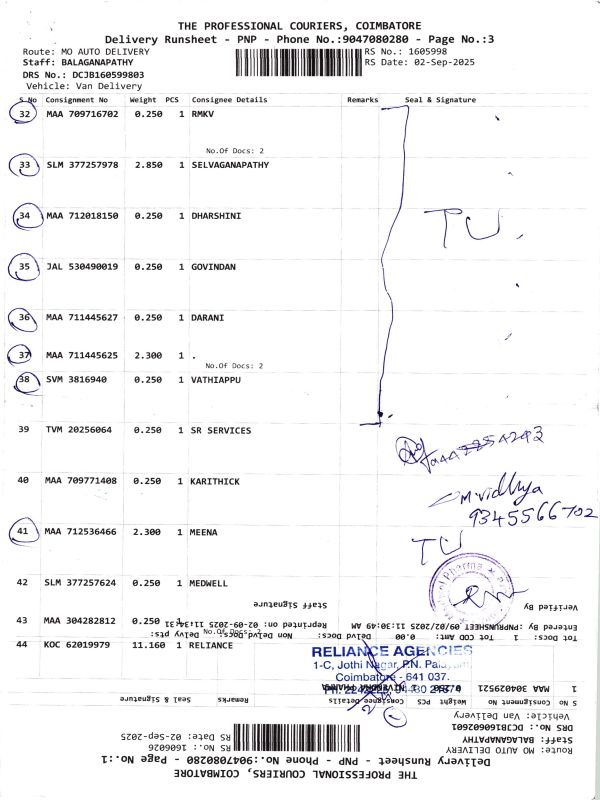 THE PROFESSIONAL COURIERS, COIMBATORE
Delivery Runsheet - PNP - Phone No.:9047080280 - Page No.:3
Route: MO AUTO DELIVERY RS No.: 1605998
Staff: BALAGANAPATHY RS Date: 02-Sep-2025
DRS No.: DCJB160599803
Vehicle: Van Delivery
S No Consignment No Weight PCS Consignee Details Remarks Seal & Signature
32 MAA 709716702 0.250 1 RMKV
No.Of Docs: 2
33 SLM 377257978 2.850 1 SELVAGANAPATHY
34 MAA 712018150 0.250 1 DHARSHINI
TU
35 JAL 530490019 0.250 1 GOVINDAN
36 MAA 711445627 0.250 1 DARANI
37 MAA 711445625 2.300 1 .
No.Of Docs: 2
38 SVM 3816940 0.250 1 VATHIAPPU
39 TVM 20256064 0.250 1 SR SERVICES
40 MAA 709771408 0.250 1 KARITHICK
M.vidhya
9345566702
41 MAA 712536466 2.300 1 MEENA
TU
42 SLM 377257624 0.250 1 MEDWELL
43 MAA 304282812 0.250 1
44 KOC 62019979 11.160 1 RELIANCE
RELIANCE AGENCIES
1-C, Jothi Nagar, P.N. Palayam,
Coimbatore - 641 037.
THE PROFESSIONAL COURIERS, COIMBATORE
Delivery Runsheet - PNP - Phone No.:9047080280 - Page No.:1
Route: MO AUTO DELIVERY RS No.: 1606026
Staff: BALAGANAPATHY RS Date: 02-Sep-2025
DRS No.: DCJB160602601
Vehicle: Van Delivery
S No Consignment No Weight PCS Consignee Details Remarks Seal & Signature
1 MAA 304029521
Tot Docs: 1 Tot COD Amt: 0.00 Delvd Docs: Non Delvd Docs: Delvy pts:
Entered By :PNPRUNSHEET 09/02/2025 11:30:49 AM Reprinted on: 02-09-2025 11:34:31
Verified By Staff Signature